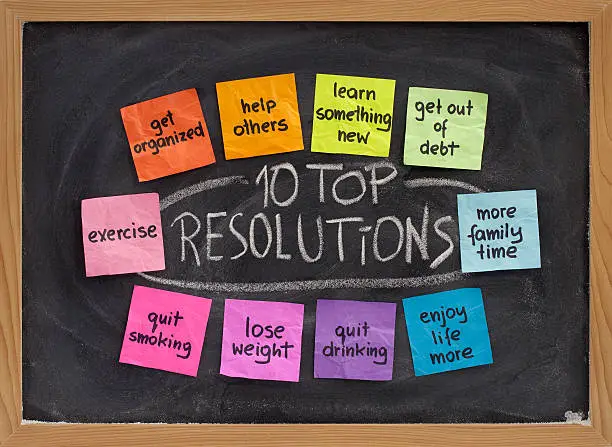 10 TOP
RESOLUTIONS
get
organized
help
others
learn
something
new
get out
of
debt
more
family
time
enjoy
life
more
quit
drinking
lose
weight
quit
smoking
exercise